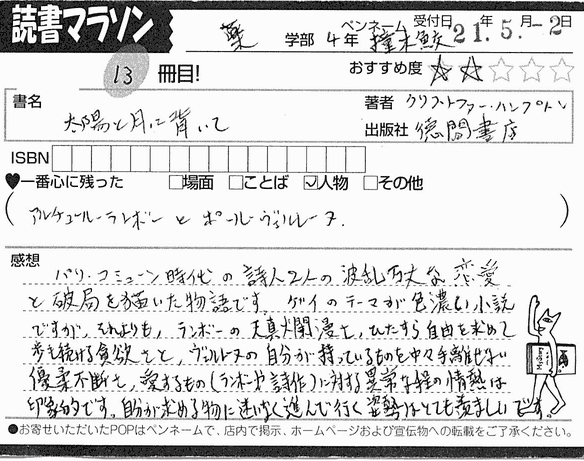 読書マラソン
薬 学部 4年 ペンネーム 撞木鮫 受付日 21.年5.月-2日
13 冊目! おすすめ度 ☆☆☆☆☆
書名 太陽と月に背いて
著者 クリストファー・ハンプトン
出版社 徳間書店
ISBN
♥一番心に残った □場面 □ことば ☑人物 □その他
(アルチュール・ランボーとポール・ヴェルレーヌ.)
感想
パリ・コミューン時代の詩人2人の波乱万丈な恋愛
と破局を描いた物語です。ゲイのテーマが色濃い小説
ですが、それよりも、ランボーの天真爛漫さ、ひたすら自由を求めて
歩き続ける貪欲さと、ヴェルレーヌの自分が持っているものを中々手離せない
優柔不断さ、愛するもの(ランボーや詩作)に対する異常な程の情熱は
印象的です。自分が求める物に迷いなく進んで行く姿勢はとても羨ましいです。
●お寄せいただいたPOPはペンネームで、店内で掲示、ホームページおよび宣伝物への転載をご了承ください。